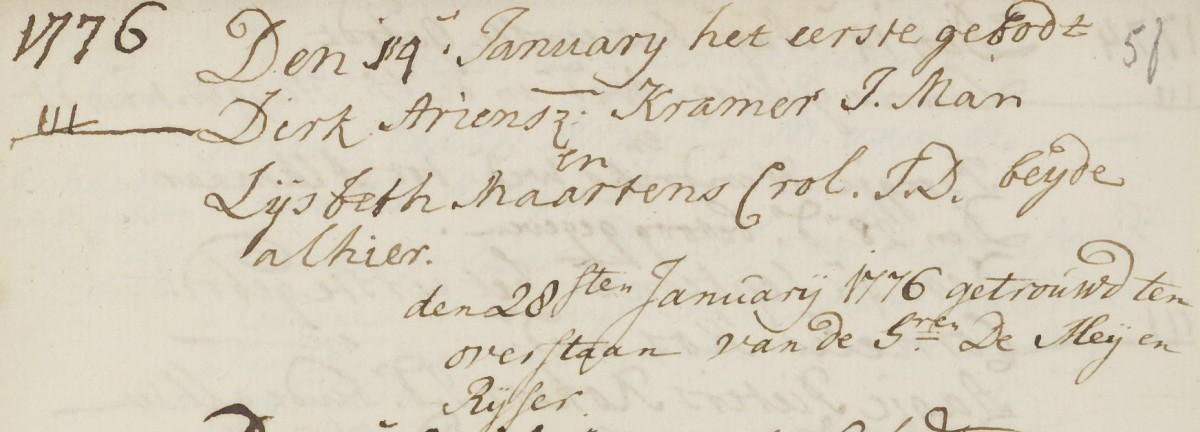 1776 Den 14 January het eerste gebodt 51
III Dirk Ariensz. Kramer J. Man
en
Lijsbeth Maartens Crol. J.D. beyde
alhier.
den 28sten Januarij 1776 getrouwd ten
overstaan van de Sren De Meij en
Rijser